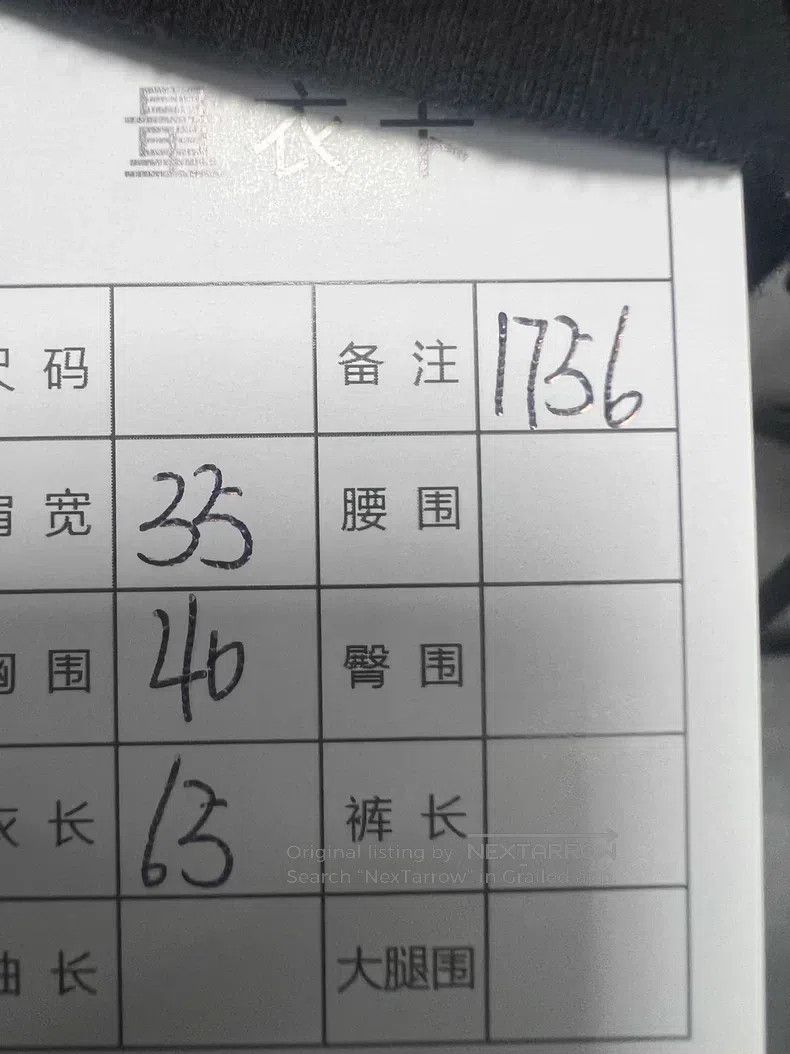 量衣卡
尺 码 备 注 1756
肩 宽 35 腰 围
胸 围 40 臀 围
衣 长 65 裤 长
Original listing by NEXTARROW
Search "NexTarrow" in Grailed app
袖 长 大腿围